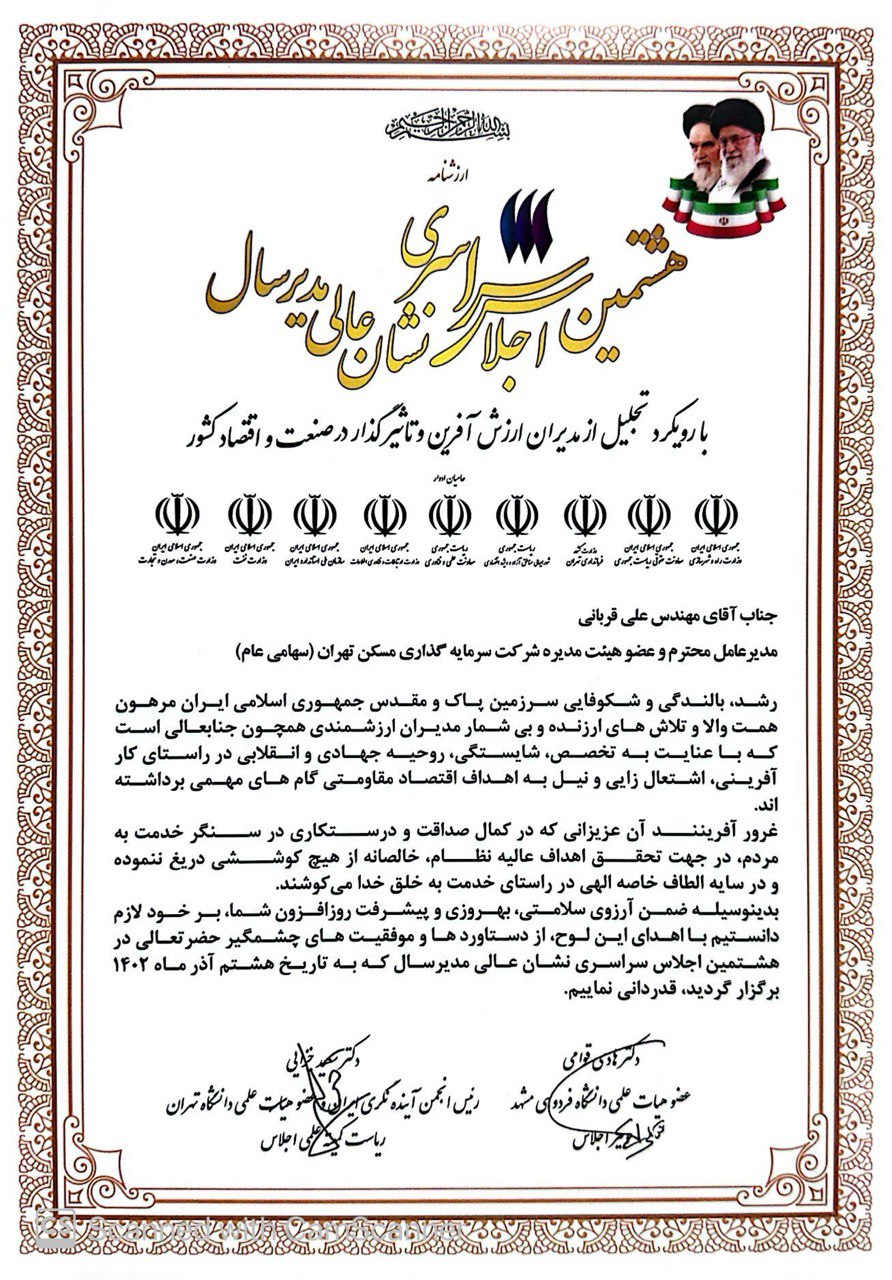 بسم الله الرحمن الرحیم
ارزشنامه
هشتمین اجلاس سراسری نشان عالی مدیر سال
با رویکرد تجلیل از مدیران ارزش آفرین و تاثیرگذار در صنعت و اقتصاد کشور
حامیان ادوار
جمهوری اسلامی ایران
وزارت راه و شهرسازی
جمهوری اسلامی ایران
معاونت حقوقی ریاست جمهوری
وزارت کشور
فرمانداری تهران
ریاست جمهوری
ریاست جمهوری
معاونت علمی و فناوری
جمهوری اسلامی ایران
وزارت ارتباطات و فناوری اطلاعات
جمهوری اسلامی ایران
سازمان ملی استاندارد ایران
جمهوری اسلامی ایران
وزارت نفت
جمهوری اسلامی ایران
وزارت صنعت و معدن و تجارت
جناب آقای مهندس علی قربانی
مدیرعامل محترم و عضو هیئت مدیره شرکت سرمایه گذاری مسکن تهران (سهامی عام)
رشد، بالندگی و شکوفایی سرزمین پاک و مقدس جمهوری اسلامی ایران مرهون
همت والا و تلاش های ارزنده و بی شمار مدیران ارزشمندی همچون جنابعالی است
که با عنایت به تخصص، شایستگی، روحیه جهادی و انقلابی در راستای کار
آفرینی، اشتعال زایی و نیل به اهداف اقتصاد مقاومتی گام های مهمی برداشته
اند.
غرور آفریننـد آن عزیزانی که در کمال صداقت و درستکاری در سنگر خدمت به
مردم، در جهت تحقق اهداف عالیه نظام، خالصانه از هیچ کوششی دریغ ننموده
و در سایه الطاف خاصه الهی در راستای خدمت به خلق خدا می‌کوشند.
بدینوسیله ضمن آرزوی سلامتی، بهروزی و پیشرفت روزافزون شما، بر خود لازم
دانستیم با اهدای این لوح، از دستاورد ها و موفقیت های چشمگیر حضرتعالی در
هشتمین اجلاس سراسری نشان عالی مدیرسال که به تاریخ هشتم آذر ماه ۱۴۰۲
برگزار گردید، قدردانی نماییم.
دکتر هادی قوامی
عضو هیات علمی دانشگاه فردوسی مشهد
اجلاس
دکتر سعید خزایی
رئیس انجمن آینده نگری ایران و عضو هیات علمی دانشگاه تهران
ریاست کمیته علمی اجلاس
CS Scanned with CamScanner